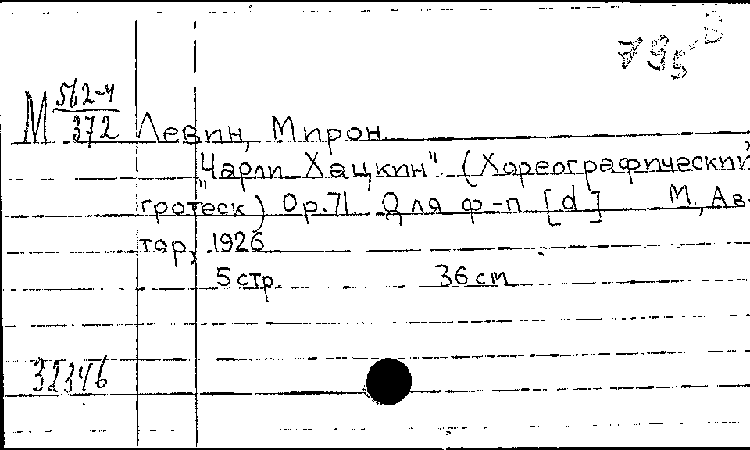 795-В
М 562-4/372 Левин, Мирон
"Чарли Хацкин". (Хореографический
гротеск) Op.71 Для ф-п [d] М., Ав-
тор, 1926
5 стр. 36 cm
32346